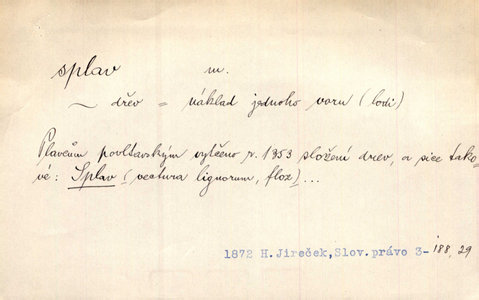 splav m.
~ dřev = náklad jednoho voru (lodi)
Plavcům povltavským vytčeno r. 1353 složení drev, a sice tako-
vé: Splav (vectura lignorum, floz)...
1872 H. Jireček, Slov. právo 3-188, 29